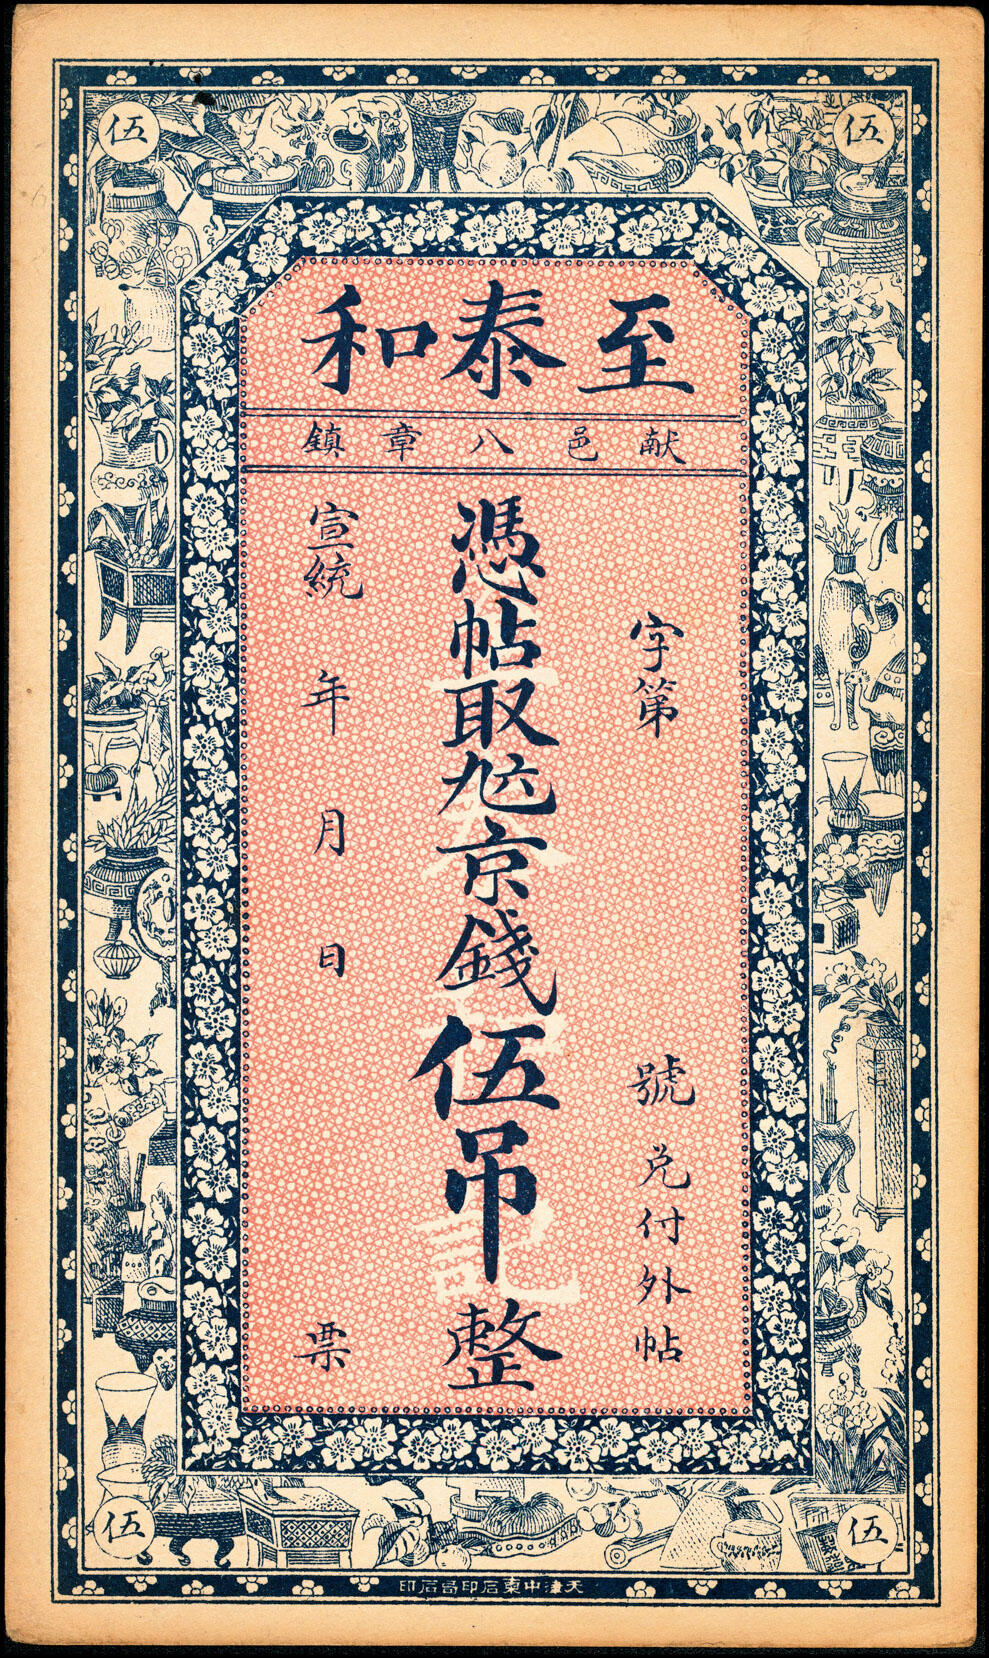 伍
伍
至泰和
献邑八章鎮
字第　號兑付外帖
憑帖取九京錢伍吊整
宣統　年　月　日　票
伍
伍
天津中東石印局石印